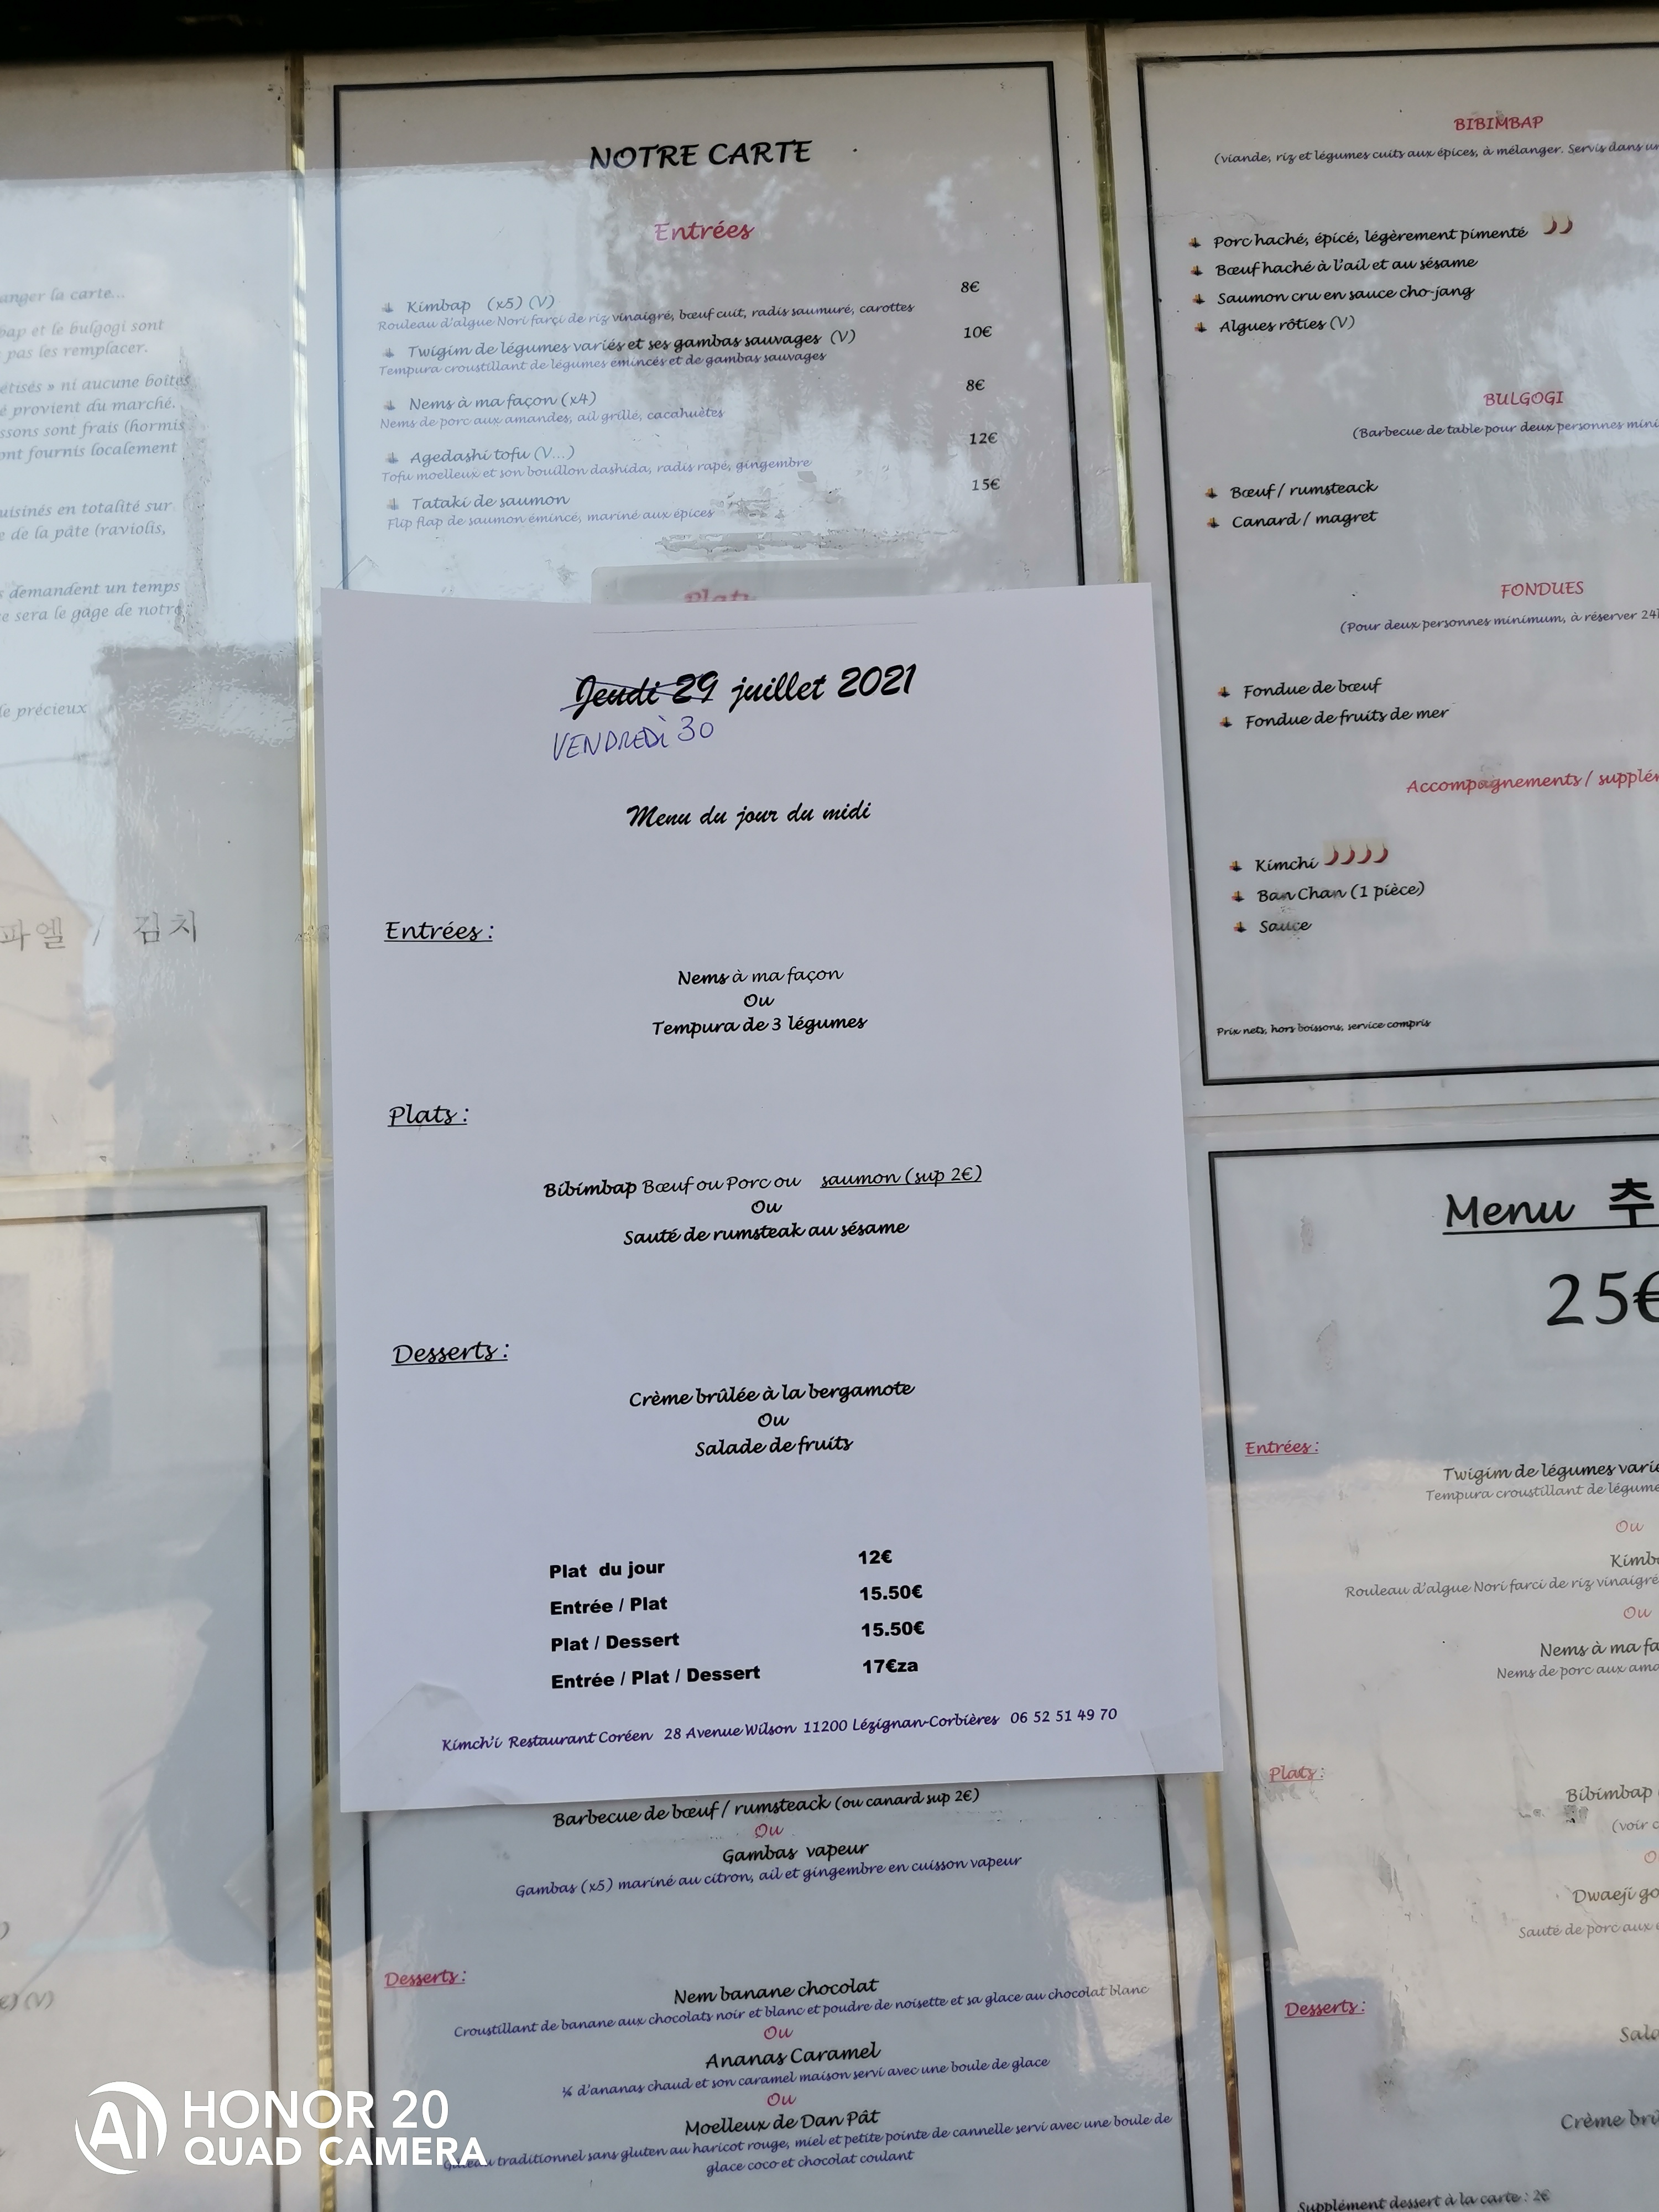 anger la carte...
bap et le bulgogi sont
pas les remplacer.
étisés » ni aucune boîtes
é provient du marché.
ssons sont frais (hormis
ont fournis localement
uisinés en totalité sur
e de la pâte (raviolis,
s demandent un temps
e sera le gage de notre
le précieux
파엘 / 김치
(V)
NOTRE CARTE
Entrées
Kimbap (x5) (V) 8€
Rouleau d'algue Nori farçi de riz vinaigré, bœuf cuit, radis saumuré, carottes
Twigim de légumes variés et ses gambas sauvages (V) 10€
Tempura croustillant de légumes émincés et de gambas sauvages
Nems à ma façon (x4) 8€
Nems de porc aux amandes, ail grillé, cacahuètes
Agedashi tofu (V...) 12€
Tofu moelleux et son bouillon dashida, radis rapé, gingembre
Tataki de saumon 15€
Flip flap de saumon émincé, mariné aux épices
Plats
Jeudi 29 juillet 2021
VENDREDI 30
Menu du jour du midi
Entrées :
Nems à ma façon
Ou
Tempura de 3 légumes
Plats :
Bibimbap Bœuf ou Porc ou saumon (sup 2€)
Ou
Sauté de rumsteak au sésame
Desserts :
Crème brûlée à la bergamote
Ou
Salade de fruits
Plat du jour 12€
Entrée / Plat 15.50€
Plat / Dessert 15.50€
Entrée / Plat / Dessert 17€za
Kimch'i Restaurant Coréen 28 Avenue Wilson 11200 Lézignan-Corbières 06 52 51 49 70
Barbecue de bœuf / rumsteack (ou canard sup 2€)
Ou
Gambas vapeur
Gambas (x5) mariné au citron, ail et gingembre en cuisson vapeur
Desserts :
Nem banane chocolat
Croustillant de banane aux chocolats noir et blanc et poudre de noisette et sa glace au chocolat blanc
Ou
Ananas Caramel
¼ d'ananas chaud et son caramel maison servi avec une boule de glace
Ou
Moelleux de Dan Pât
Gâteau traditionnel sans gluten au haricot rouge, miel et petite pointe de cannelle servi avec une boule de
glace coco et chocolat coulant
BIBIMBAP
(viande, riz et légumes cuits aux épices, à mélanger. Servis dans un
Porc haché, épicé, légèrement pimenté
Bœuf haché à l'ail et au sésame
Saumon cru en sauce cho-jang
Algues rôties (V)
BULGOGI
(Barbecue de table pour deux personnes mini
Bœuf / rumsteack
Canard / magret
FONDUES
(Pour deux personnes minimum, à réserver 24h
Fondue de bœuf
Fondue de fruits de mer
Accompagnements / supplém
Kimchi
Ban Chan (1 pièce)
Sauce
Prix nets, hors boissons, service compris
Menu 추
25€
Entrées :
Twigim de légumes varié
Tempura croustillant de légume
Ou
Kimba
Rouleau d'algue Nori farci de riz vinaigré
Ou
Nems à ma fa
Nems de porc aux ama
Plats :
Bibimbap
(voir c
O
Dwaeji go
Sauté de porc aux
Desserts :
Sala
Crème brû
Supplément dessert à la carte : 2€
AI HONOR 20
QUAD CAMERA